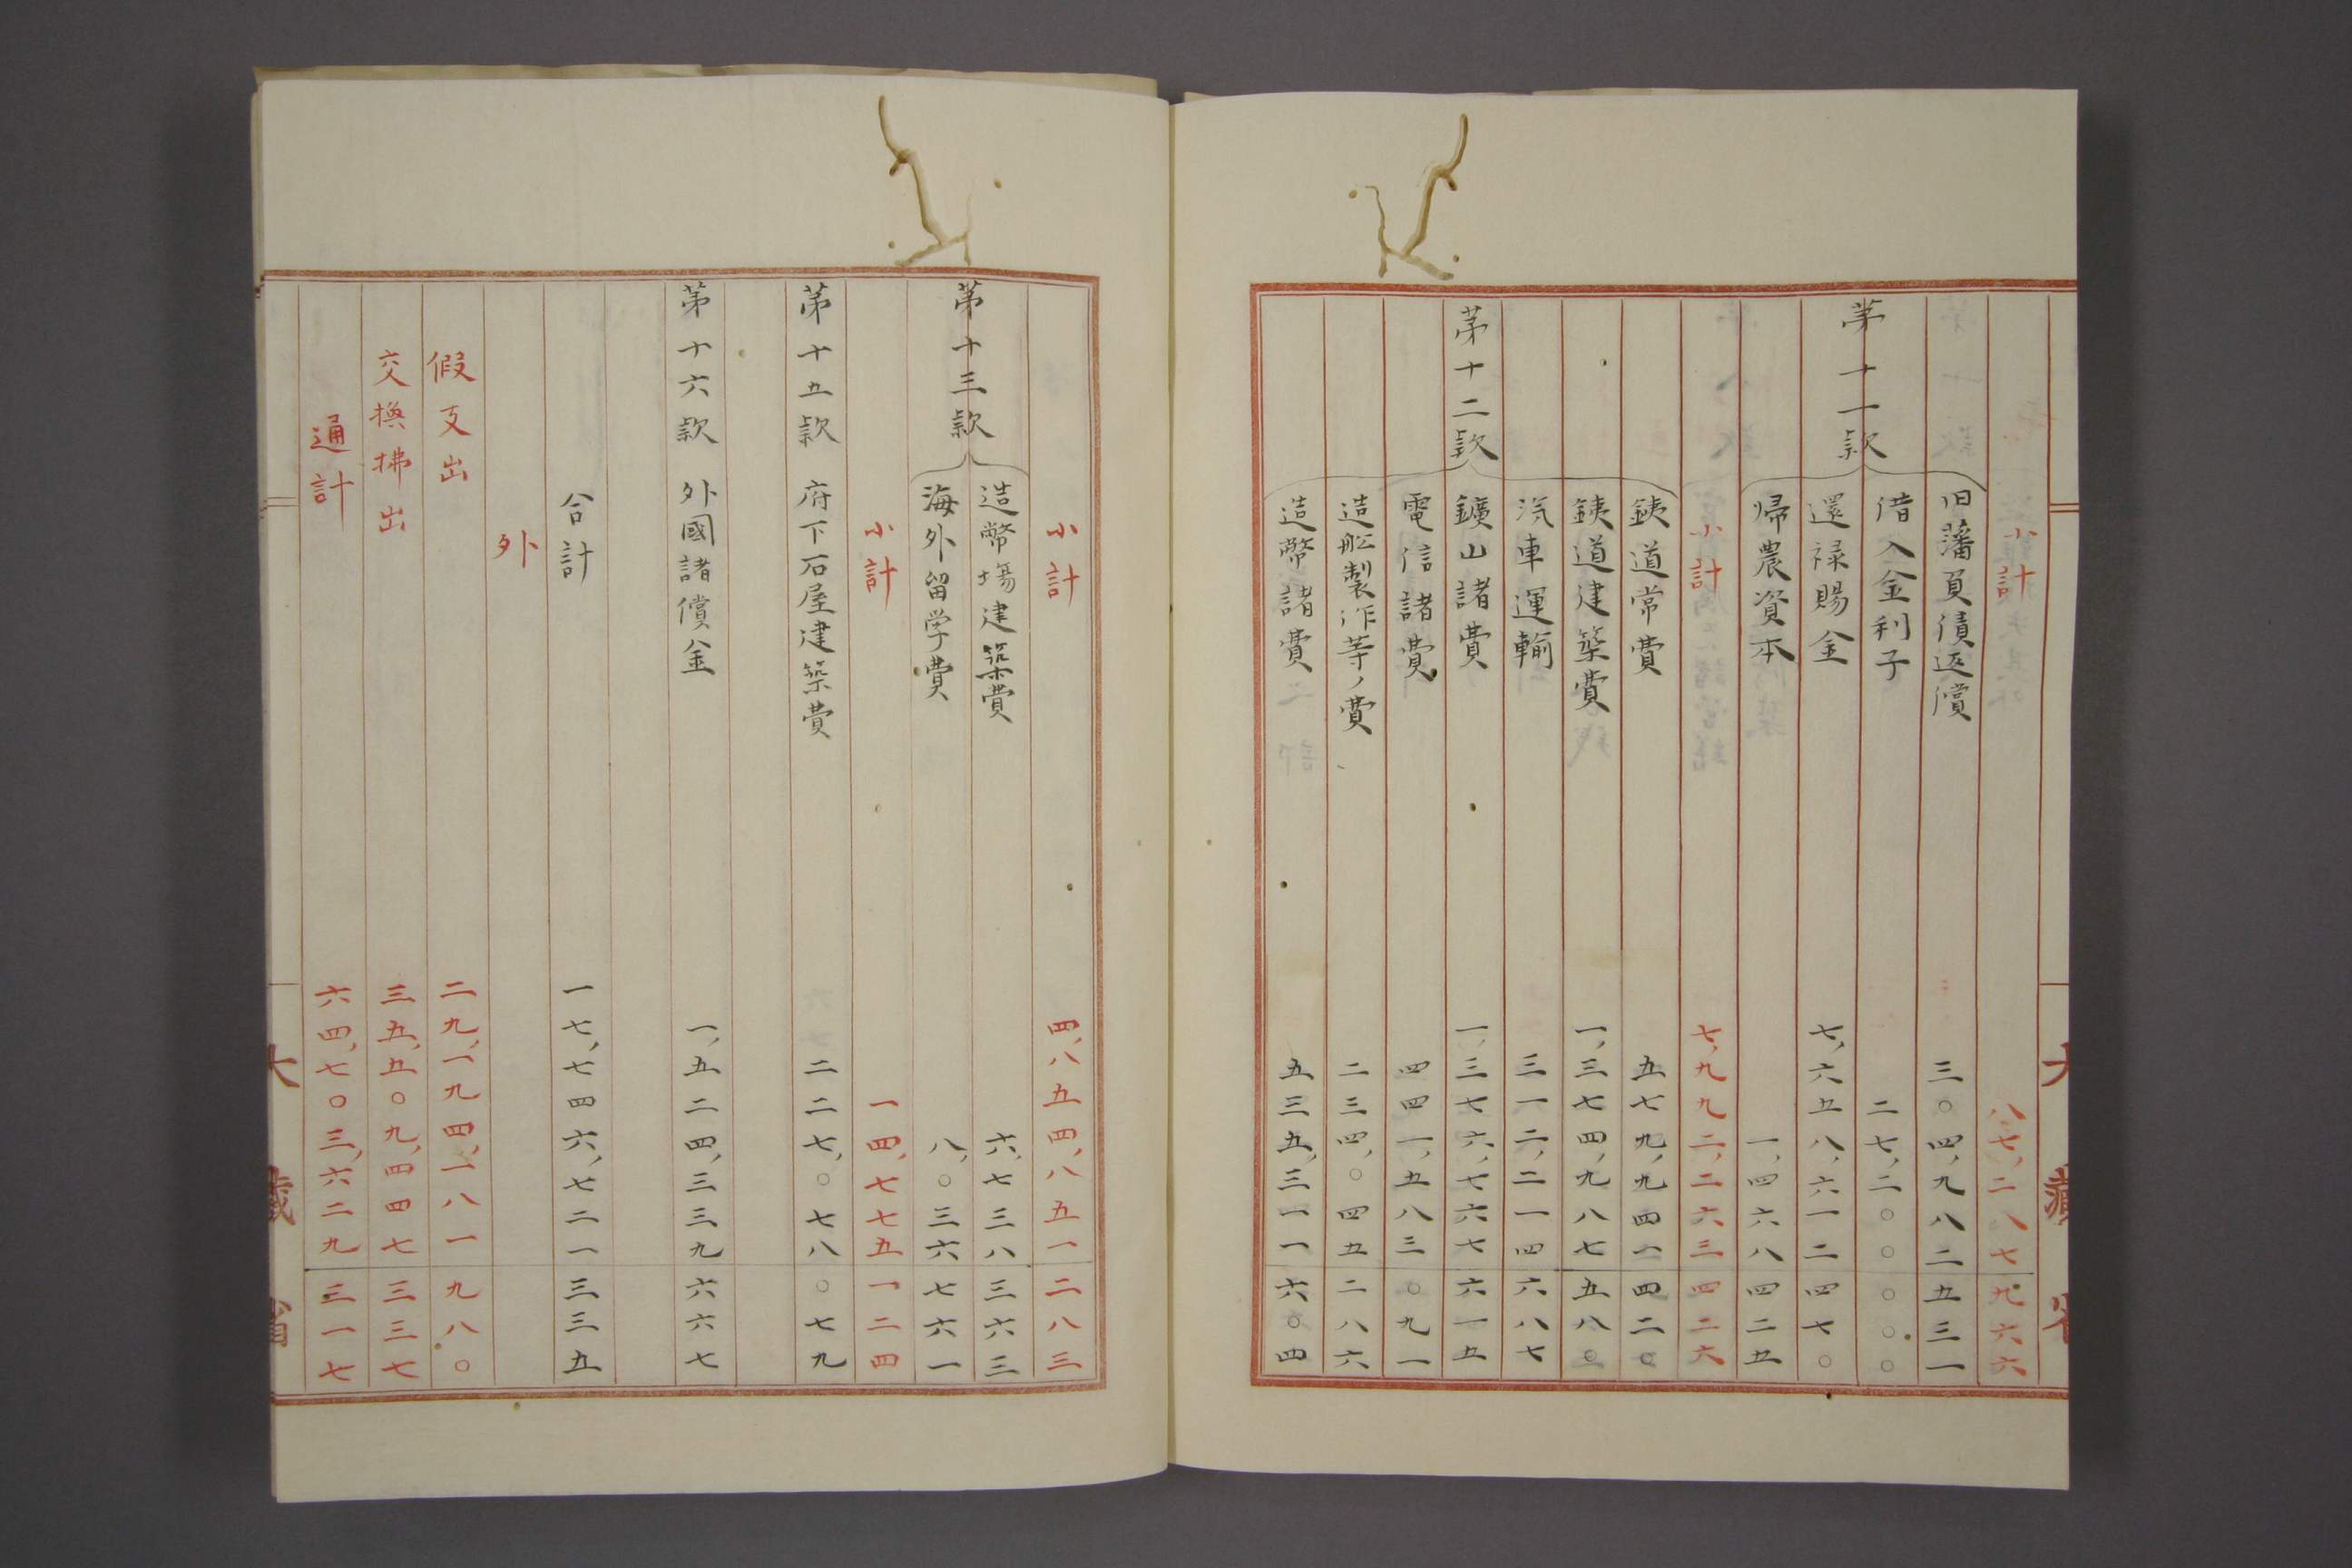 小計 八七,二八七九六六
第十一款
旧藩負債返償 三〇四,九八二五三一
借入金利子 二七,二〇〇〇〇〇
還禄賜金 七,六五八,六一二四七〇
帰農資本 一,四六八四二五
小計 七,九九二,二六三四二六
第十二款
鉄道常費 五七九,九四一四二〇
鉄道建築費 一,三七四,九八七五八〇
汽車運輸 三一二,二一四六八七
鑛山諸費 一,三七六,七六七六一五
電信諸費 四四一,五八三〇九一
造舩製作等ノ費 二三四,〇四五二八六
造幣諸費 五三五,三一一六〇四
小計 四,八五四,八五一二八三
第十三款
造幣場建築費 六,七三八三六三
海外留学費 八,〇三六七六一
小計 一四,七七五一二四
第十五款 府下石屋建築費 二二七,〇七八〇七九
第十六款 外國諸償金 一,五二四,三三九六六七
合計 一七,七四六,七二一三三五
外
假支出 二九,一九四,一八一九八〇
交換拂出 三五,五〇九,四四七三三七
通計 六四,七〇三,六二九三一七
大藏省